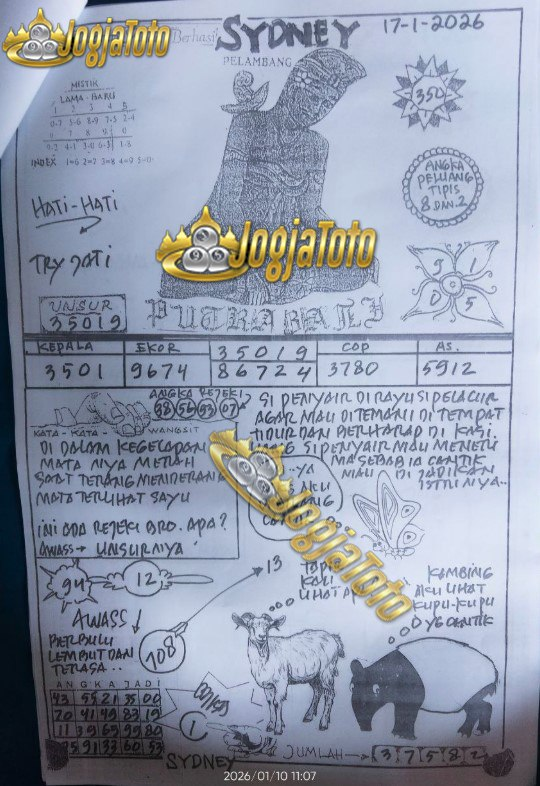 JogjaToto
Berhasil
SYDNEY
17-1-2026
PELAMBANG
MISTIK
LAMA - BARU
1 2 3 4 5
0-7 5-6 8-9 7-5 2-4
6 7 8 9 0
INDEX 1=6 2=7 3=8 4=9 5=0
350
1
ANGKA
PELUANG
TIPIS
8 DAN 2
HATI-HATI
TRY JATI
JogjaToto
9 1
0 5
UNSUR
35019
PUTRA BALI
KEPALA EKOR 35019 COP AS.
3501 9674 86724 3780 5912
ANGKA REJEKI
38 56 93 07
KATA - KATA - WANGSIT
DI DALAM KEGELAPAN
MATA NYA MERAH
SAAT TERANG MENDERANG
MATA TERLIHAT SAYU
INI ADA REJEKI BRO. APA?
AWASS → UNSURNYA
SI PENYAIR DIRAYU SI PELACUR
AGAR MAU DI TEMANI DI TEMPAT
TIDUR DAN BERHARAP DI KASI.
SI PENYAIR MAU MENERI
MA SEBAB IA CANTIK
MAU DI JADIKAN
ISTRI NYA..
JogjaToto
94
12
13
108
KALI
LIHAT
KAMBING
AKU LIHAT
KUPU-KUPU
YG CANTIK
AWASS
BERBULU
LEMBUT DAN
TERASA..
ANGKA JADI
43 55 21 35 00
70 41 49 83 19
11 39 69 99 80
5 91 33 60 53
1
SYDNEY
JUMLAH → 3 7 5 8 2
2026/01/10 11:07